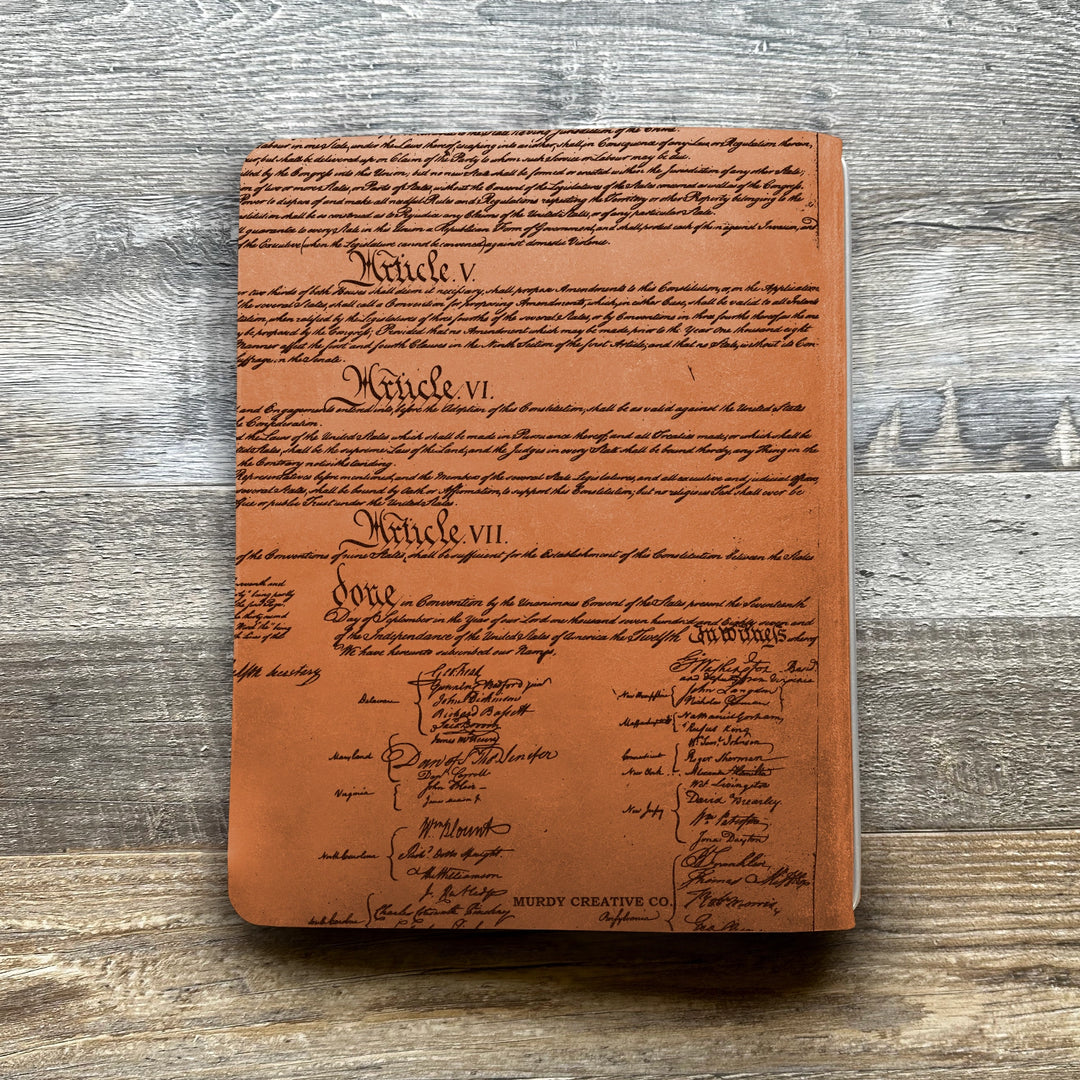 Labour in one State, under the Laws thereof, escaping into another, shall, in Consequence of any Law or Regulation therein,
but shall be delivered up on Claim of the Party to whom such Service or Labour may be due.
by the Congress into this Union, but no new State shall be formed or erected within the Jurisdiction of any other State;
of two or more States, or Parts of States, without the Consent of the Legislatures of the States concerned as well as of the Congress.
Power to dispose of and make all needful Rules and Regulations respecting the Territory or other Property belonging to the
shall be so construed as to Prejudice any Claims of the United States, or of any particular State.
guarantee to every State in this Union a Republican Form of Government, and shall protect each of them against Invasion; and
of the Executive (when the Legislature cannot be convened) against domestic Violence.
Article. V.
two thirds of both Houses shall deem it necessary, shall propose Amendments to this Constitution, or, on the Application
the several States, shall call a Convention for proposing Amendments, which, in either Case, shall be valid to all Intents
when ratified by the Legislatures of three fourths of the several States, or by Conventions in three fourths thereof, as the one
be proposed by the Congress; Provided that no Amendment which may be made prior to the Year One thousand eight
Manner affect the first and fourth Clauses in the Ninth Section of the first Article; and that no State, without its Con-
Suffrage in the Senate.
Article. VI.
and Engagements entered into, before the Adoption of this Constitution, shall be as valid against the United States
Confederation.
the Laws of the United States which shall be made in Pursuance thereof; and all Treaties made, or which shall be
States, shall be the supreme Law of the Land; and the Judges in every State shall be bound thereby, any Thing in the
the Contrary notwithstanding.
Representatives before mentioned, and the Members of the several State Legislatures, and all executive and judicial Officers,
several States, shall be bound by Oath or Affirmation, to support this Constitution; but no religious Test shall ever be
or public Trust under the United States.
Article. VII.
of the Conventions of nine States, shall be sufficient for the Establishment of this Constitution between the States
done in Convention by the Unanimous Consent of the States present the Seventeenth
Day of September in the Year of our Lord one thousand seven hundred and Eighty seven and
of the Independance of the United States of America the Twelfth In witness whereof
We have hereunto subscribed our Names,
Go: Washington
and deputy from Virginia
Delaware
Geo: Read
Gunning Bedford jun
John Dickinson
Richard Bassett
Jaco: Broom
Maryland
James McHenry
Dan of St Thos Jenifer
Danl Carroll
Virginia
John Blair
James Madison Jr
North Carolina
Wm Blount
Richd Dobbs Spaight.
Hu Williamson
South Carolina
J. Rutledge
Charles Cotesworth Pinckney
New Hampshire
John Langdon
Nicholas Gilman
Massachusetts
Nathaniel Gorham
Rufus King
Connecticut
Wm Saml Johnson
Roger Sherman
New York
Alexander Hamilton
New Jersey
Wil: Livingston
David Brearley
Wm Paterson
Jona: Dayton
Pensylvania
B Franklin
Thomas Mifflin
Robt Morris
MURDY CREATIVE CO.